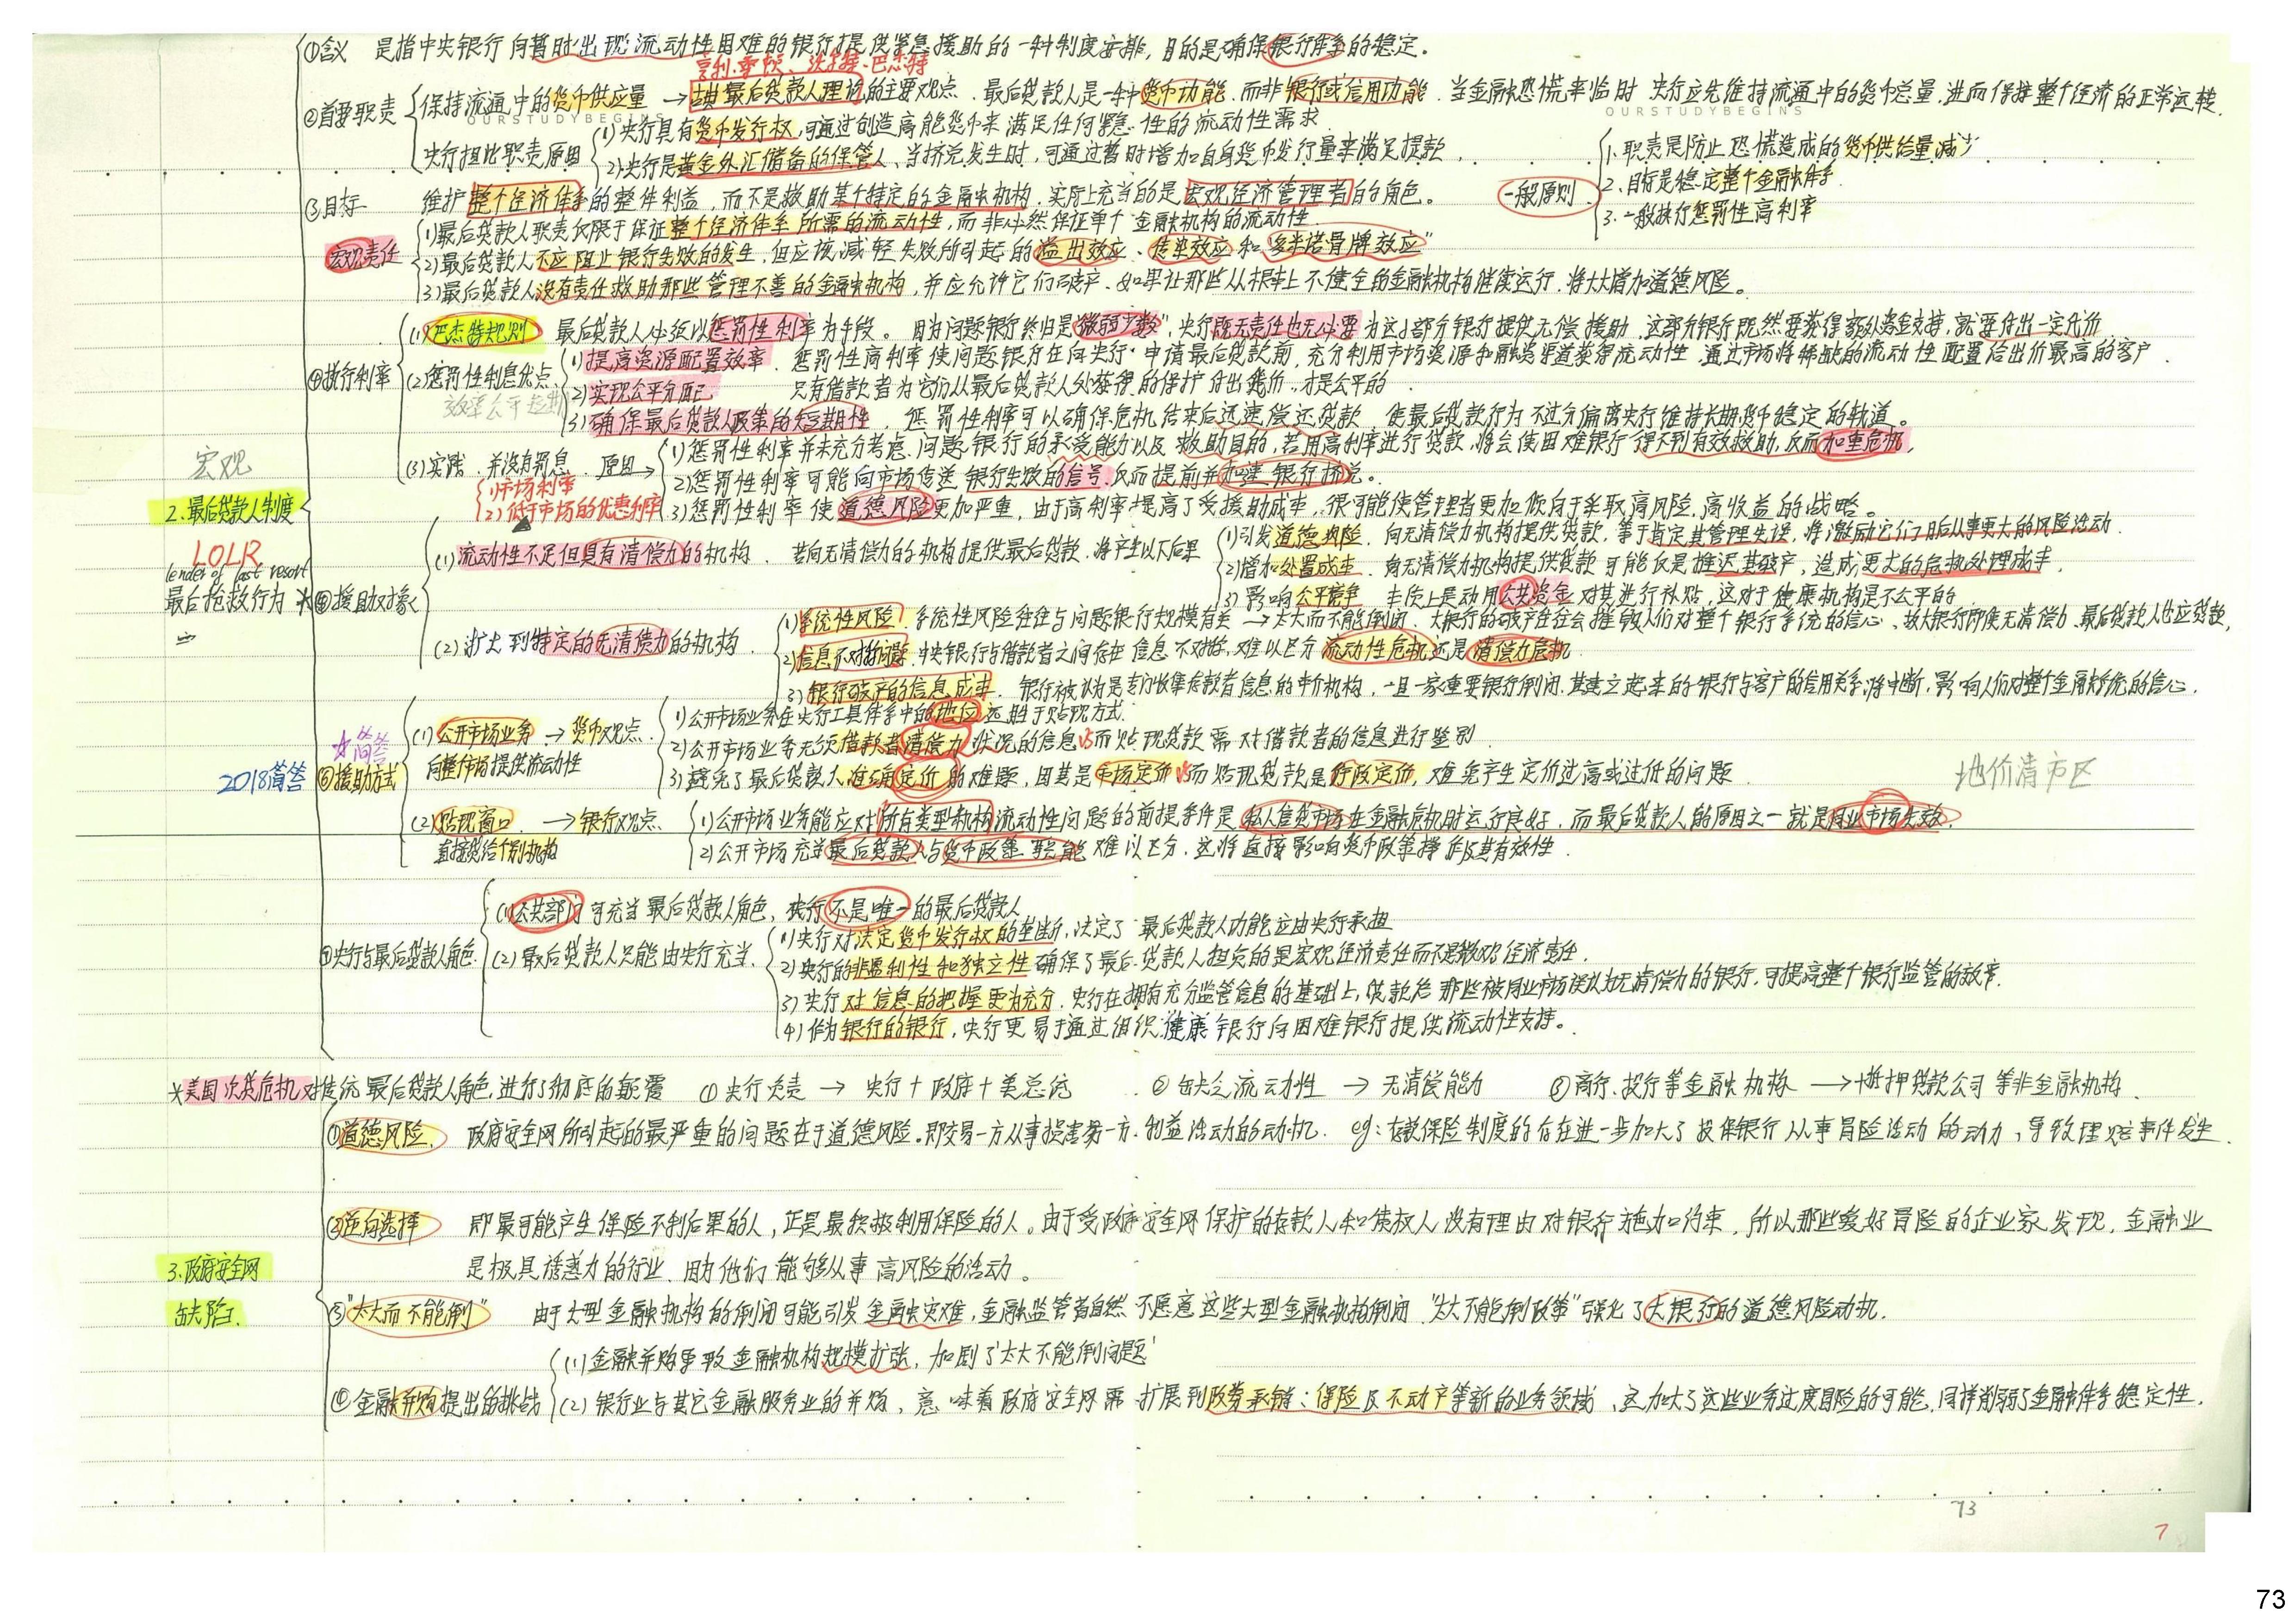 ①含义 是指中央银行向暂时出现流动性困难的银行提供紧急援助的一种制度安排，目的是确保银行体系的稳定。
亨利·桑顿、沃尔特·巴杰特
②首要职责 保持流通中的货币供应量 → 古典最后贷款人理论的主要观点．最后贷款人是一种货币功能，而非银行或信用功能．当金融恐慌来临时 央行应先维持流通中的货币总量，进而保持整个经济的正常运转．
OURSTUDYBEGINS
OURSTUDYBEGINS
央行担此职责原因 1)央行具有货币发行权，可通过创造高能货币来满足任何紧急性的流动性需求．
2)央行是黄金外汇储备的保管人，当挤兑发生时，可通过暂时增加自身货币发行量来满足提款．
一般原则
1．职责是防止恐慌造成的货币供给量减少
2．目标是稳定整个金融体系
3．一般执行惩罚性高利率
③目标 维护整个经济体系的整体利益，而不是救助某个特定的金融机构．实际上充当的是宏观经济管理者的角色。
宏观责任 1)最后贷款人职责仅限于保证整个经济体系所需的流动性，而非必然保证单个金融机构的流动性
2)最后贷款人不应阻止银行失败的发生，但应该减轻失败所引起的溢出效应、传染效应和"多米诺骨牌效应"
3)最后贷款人没有责任救助那些管理不善的金融机构，并应允许它们破产．如果让那些从根本上不健全的金融机构继续运行．将大大增加道德风险。
④执行利率 (1)巴杰特规则 最后贷款人必须以惩罚性利率为手段。因为问题银行终归是"微弱少数"，央行既无责任也无必要为这小部分银行提供无偿援助．这部分银行既然要获得额外资金支持，就要付出一定代价
(2)惩罚性利息优点 1)提高资源配置效率．惩罚性高利率使问题银行在向央行申请最后贷款前，充分利用市场资源和融资渠道获得流动性．通过市场将稀缺的流动性配置给出价最高的客户．
效率公平短期
2)实现公平分配 只有借款者为它们从最后贷款人处获得的保护付出代价，才是公平的．
3)确保最后贷款人政策的短期性．惩罚性利率可以确保危机结束后迅速偿还贷款 使最后贷款行为不过分偏离央行维持长期货币稳定的轨道。
(3)实践．并没有罚息．原因→ 1)惩罚性利率并未充分考虑问题银行的承受能力以及救助目的，若用高利率进行贷款，将会使困难银行得不到有效救助，反而加重危机，
2)惩罚性利率可能向市场传送银行失败的信号，反而提前并加速银行挤兑。
1)市场利率
2)低于市场的优惠利率
3)惩罚性利率使道德风险更加严重，由于高利率提高了受援助成本，很可能使管理者更加倾向于采取高风险，高收益的战略。
宏观
2．最后贷款人制度
LOLR
lender of last resort
最后抢救行为
⑤援助对象 (1)流动性不足但具有清偿力的机构．若向无清偿力的机构提供最后贷款．将产生以下后果
1)引发道德风险．向无清偿力机构提供贷款，等于肯定其管理失误，将激励它们日后从事更大的风险活动．
2)增加处置成本．向无清偿力机构提供贷款可能仅是推迟其破产，造成更大的危机处理成本．
3)影响公平竞争 本质上是动用公共资金对其进行补贴，这对于健康机构是不公平的
(2)扩大到特定的无清偿力的机构．
1)系统性风险．系统性风险往往与问题银行规模有关 → 太大而不能倒闭．大银行的破产往往会摧毁人们对整个银行系统的信心．故大银行即使无清偿力．最后贷款人也应贷款，
2)信息不对称问题．中央银行与借款者之间存在信息不对称，难以区分流动性危机还是清偿力危机
3)银行破产的信息成本．银行被认为是专门收集贷款者信息的中介机构，一旦一家重要银行倒闭．其建立起来的银行与客户的信用关系将中断，影响人们对整个金融系统的信心．
☆简答
2018简答
⑥援助方式 (1)公开市场业务 → 货币观点．
向整个市场提供流动性
1)公开市场业务在央行工具体系中的地位远胜于贴现方式．
2)公开市场业务无须借款者清偿力状况的信息vs而贴现贷款需对借款者的信息进行鉴别．
3)避免了最后贷款人准确定价的难题，因其是市场定价vs而贴现贷款是行政定价，难免产生定价过高或过低的问题．
地价清市区
(2)贴现窗口．→银行观点．
直接贷给个别机构
1)公开市场业务能应对所有类型机构流动性问题的前提条件是私人信贷市场在金融危机时运行良好．而最后贷款人的原因之一就是同业市场失效．
2)公开市场充当最后贷款人与货币政策职能难以区分．这将直接影响货币政策操作及其有效性．
⑦央行与最后贷款人角色 (1)公共部门可充当最后贷款人角色，央行不是唯一的最后贷款人
(2)最后贷款人只能由央行充当．
1)央行对法定货币发行权的垄断，决定了最后贷款人功能应由央行承担
2)央行的非盈利性和独立性确保了最后贷款人担负的是宏观经济责任而不是微观经济责任．
3)央行对信息的把握更为充分．央行在拥有充分监管信息的基础上，贷款给那些被同业市场误认为无清偿力的银行，可提高整个银行监管的效率．
4)作为银行的银行，央行更易于通过组织健康银行向困难银行提供流动性支持。
*美国次贷危机对传统最后贷款人角色进行了彻底的颠覆 ①央行负责 → 央行＋政府＋美总统 ②缺乏流动性 → 无清偿能力 ③商行、投行等金融机构 → 抵押贷款公司等非金融机构．
3．政府安全网
缺陷
①道德风险．政府安全网所引起的最严重的问题在于道德风险．即交易一方从事损害另一方利益活动的动机．eg：存款保险制度的存在进一步加大了投保银行从事冒险活动的动力，导致理赔事件发生．
②逆向选择 即最可能产生保险不利后果的人，正是最积极利用保险的人。由于受政府安全网保护的存款人和债权人没有理由对银行施加约束，所以那些爱好冒险的企业家发现，金融业
是极具诱惑力的行业．因为他们能够从事高风险的活动。
③"太大而不能倒" 由于大型金融机构的倒闭可能引发金融灾难，金融监管者自然不愿意这些大型金融机构倒闭．"太大不能倒政策"强化了大银行的道德风险动机．
④金融并购提出的挑战 (1)金融并购导致金融机构规模扩张，加剧了'太大不能倒问题'
(2)银行业与其它金融服务业的并购，意味着政府安全网需扩展到证券承销；保险及不动产等新的业务领域，这加大了这些业务过度冒险的可能，同样削弱了金融体系稳定性．
73
7
73